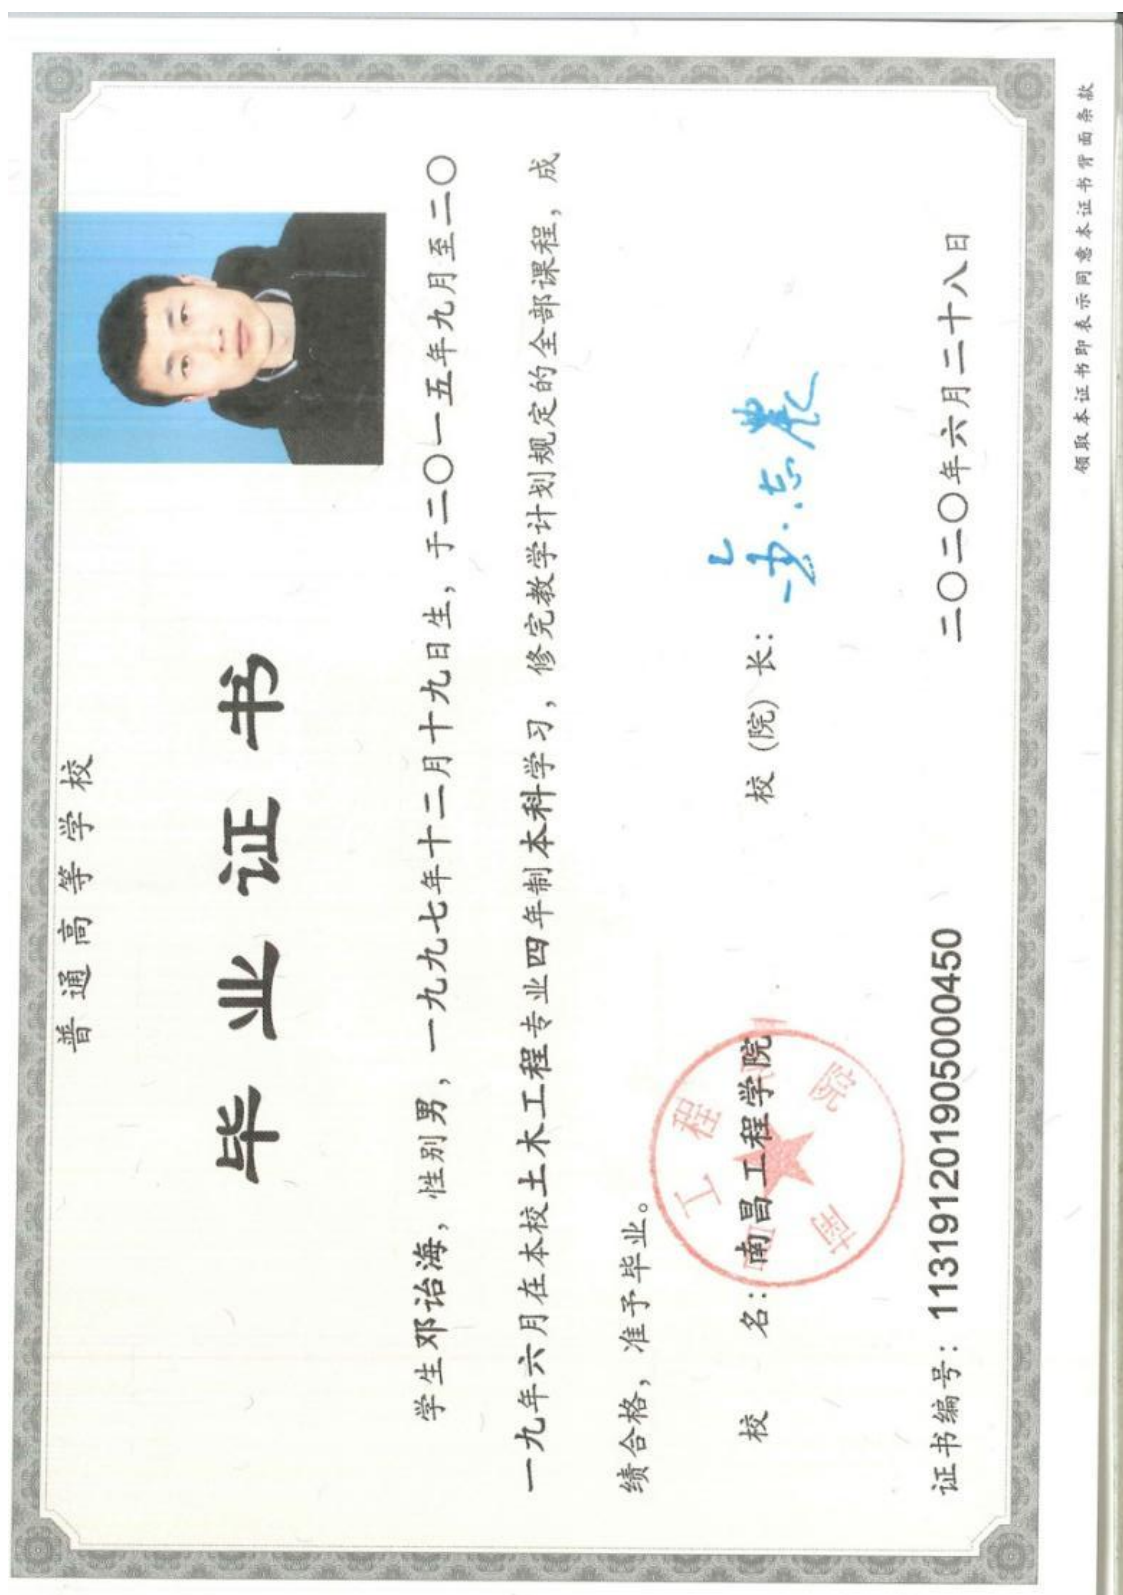 普通高等学校
毕业证书
学生邓诒海，性别男，一九九七年十二月十九日生，于二〇一五年九月至二〇
一九年六月在本校土木工程专业四年制本科学习，修完教学计划规定的全部课程，成
绩合格，准予毕业。
校 名：南昌工程学院 校（院）长：
证书编号：113191201905000450 二〇二〇年六月二十八日
领取本证书即表示同意本证书背面条款